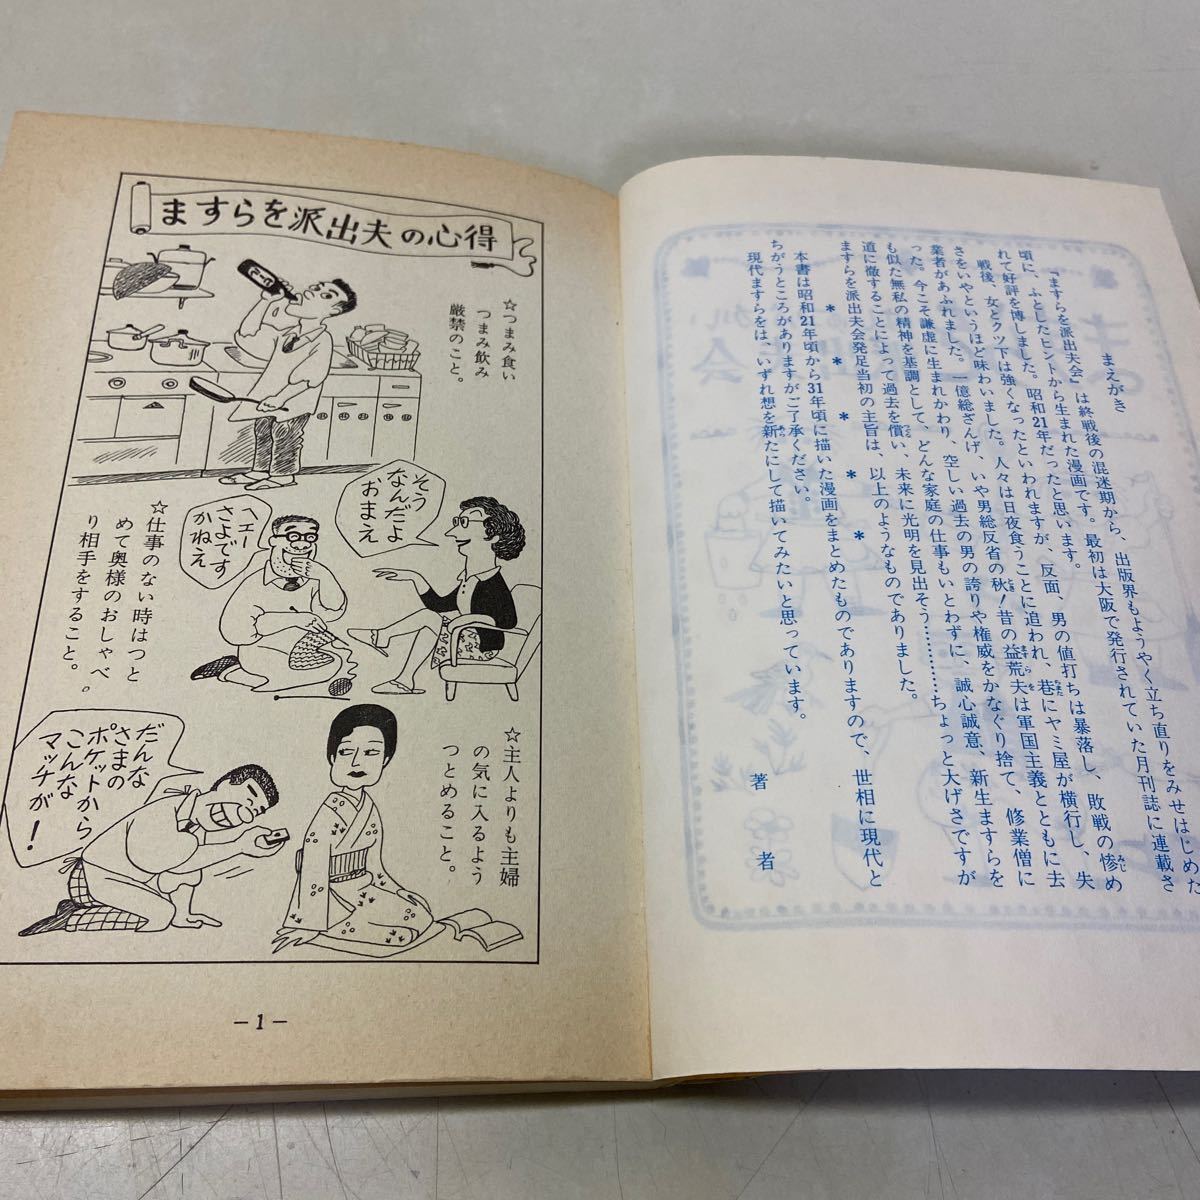 まえがき
『ますらを派出夫会』は終戦後の混迷期から、出版界もようやく立ち直りをみせはじめた
頃に、ふとしたヒントから生まれた漫画です。最初は大阪で発行されていた月刊誌に連載さ
れて好評を博しました。昭和21年だったと思います。
戦後、女とクツ下は強くなったといわれますが、反面、男の値打ちは暴落し、敗戦の惨め
さをいやというほど味わいました。人々は日夜食うことに追われ、巷にヤミ屋が横行し、失
業者があふれました。一億総ざんげ、いや男総反省の秋！昔の益荒夫は軍国主義とともに去
った。今こそ謙虚に生まれかわり、空しい過去の男の誇りや権威をかなぐり捨て、修業僧に
も似た無私の精神を基調として、どんな家庭の仕事もいとわずに、誠心誠意、新生ますらを
道に徹することによって過去を償い、未来に光明を見出そう…………ちょっと大げさですが
ますらを派出夫会発足当初の主旨は、以上のようなものでありました。
* * * * *
本書は昭和21年頃から31年頃に描いた漫画をまとめたものでありますので、世相に現代と
ちがうところがありますがご了承ください。
現代ますらをは、いずれ想を新たにして描いてみたいと思っています。
著者
ますらを派出夫の心得
☆つまみ食い
つまみ飲み
厳禁のこと。
そう
なんだよ
おまえ
ヘェー
さよです
かねえ
☆仕事のない時はつと
めて奥様のおしゃべ
り相手をすること。
☆主人よりも主婦
の気に入るよう
つとめること。
だんな
さまの
ポケットから
こんな
マッチが！
－1－